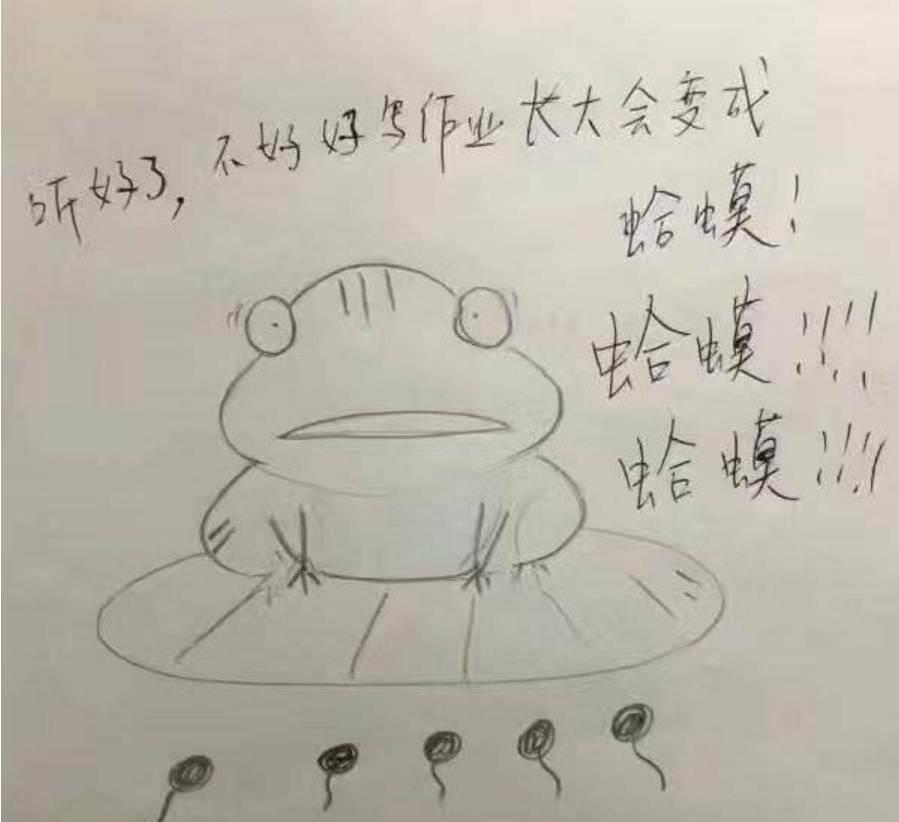 听好了，不好好写作业长大会变成
蛤蟆！
蛤蟆！！！！
蛤蟆！！！！